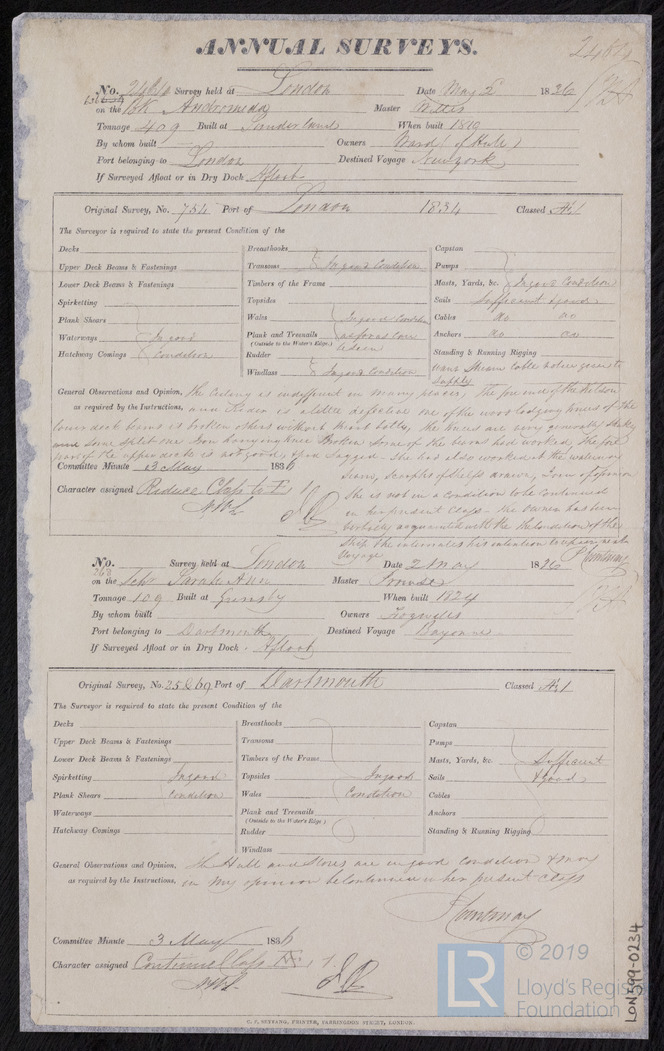 ANNUAL SURVEYS.
No. Survey held at London Date May 2 1836
on the Bk Andromeda Master
Tonnage 409 Built at Sunderland When built 1819
By whom built Owners Ward (of Hull)
Port belonging to London Destined Voyage New York
If Surveyed Afloat or in Dry Dock Afloat
Original Survey, No. 754 Port of London 1834 Classed Æ 1
The Surveyor is required to state the present Condition of the
Decks
Upper Deck Beams & Fastenings
Lower Deck Beams & Fastenings
Spirketting
Plank Shears
Waterways In good
Hatchway Comings Condition
Breasthooks
Transoms In good Condition
Timbers of the Frame
Topsides
Wales In good Condition
Plank and Treenails as far as can
(Outside to the Water's Edge.) be seen
Rudder
Windlass In good Condition
Capstan
Pumps
Masts, Yards, &c. In good Condition
Sails Sufficient & good
Cables do do
Anchors do do
Standing & Running Rigging
want Stream cable
supply
General Observations and Opinion, the ceiling is indifferent in many places, the fore end of the Kelson
as required by the Instructions, and is a little defective one of the wood lodging knees of the
lower deck beams is broken others without bolts, the knees are very generally
some split one Iron hanging knee Broken some of the beams had worked, the fore
part of the upper deck is not good, She had also worked at the waterway
seam,
She is not in a condition to be continued
in her present Class – the owner has been
acquainted with the condition of the
Ship his intention next
Voyage
Committee Minute 13 May 1836
Character assigned Reduce Class to E 1
No. Survey held at London Date 2 May 1836
on the Schr Sarah Ann Master
Tonnage 109 Built at Grimsby When built 1824
By whom built Owners
Port belonging to Dartmouth Destined Voyage Bayonne
If Surveyed Afloat or in Dry Dock Afloat
Original Survey, No. Port of Dartmouth Classed Æ 1
The Surveyor is required to state the present Condition of the
Decks
Upper Deck Beams & Fastenings
Lower Deck Beams & Fastenings
Spirketting In good
Plank Shears Condition
Waterways
Hatchway Comings
Breasthooks
Transoms
Timbers of the Frame
Topsides In good
Wales Condition
Plank and Treenails
(Outside to the Water's Edge)
Rudder
Windlass
Capstan
Pumps
Masts, Yards, &c. Sufficient
Sails & good
Cables
Anchors
Standing & Running Rigging
General Observations and Opinion, The Hull and Stores are in good condition & may
as required by the Instructions, in my opinion be continued in her present Class
Committee Minute 3 May 1836
Character assigned Continue Class Æ 1
C. F. SEYFANG, PRINTER, FARRINGDON STREET, LONDON.
LON599-0234
LR
© 2019
Lloyd's Register
Foundation